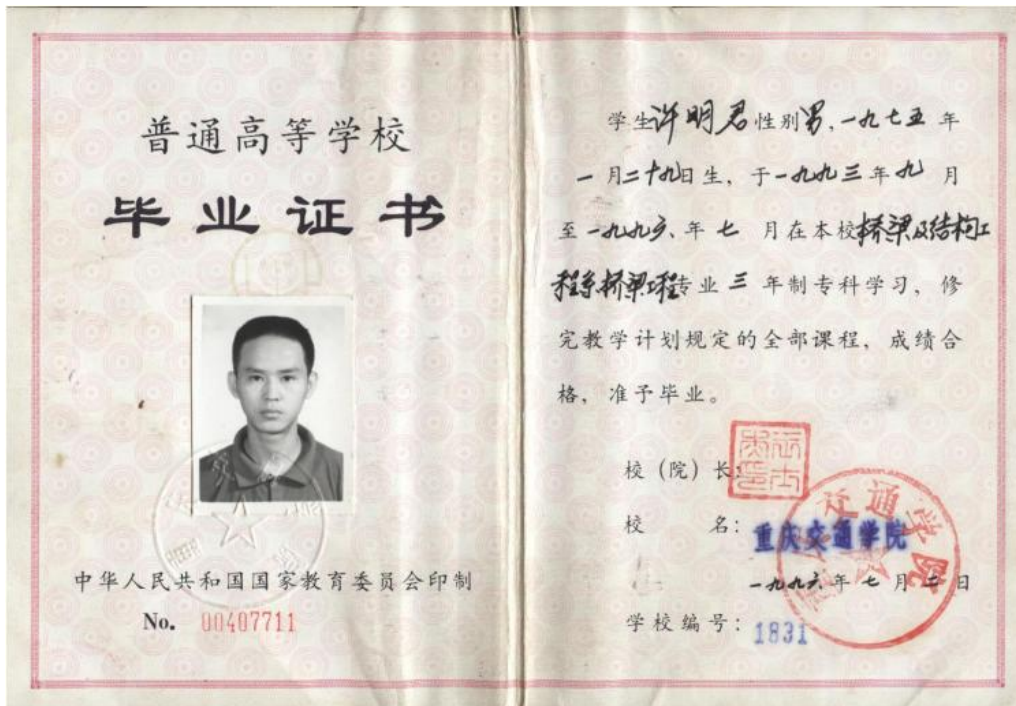 普通高等学校
毕业证书
中华人民共和国国家教育委员会印制
No. 00407711
学生许明君性别男,一九七五年
一月二十九日生,于一九九三年九月
至一九九六年七月在本校桥梁及结构工
程系桥梁工程专业三年制专科学习,修
完教学计划规定的全部课程,成绩合
格,准予毕业。
校(院)长:
校名:重庆交通学院
一九九六年七月二日
学校编号:1831